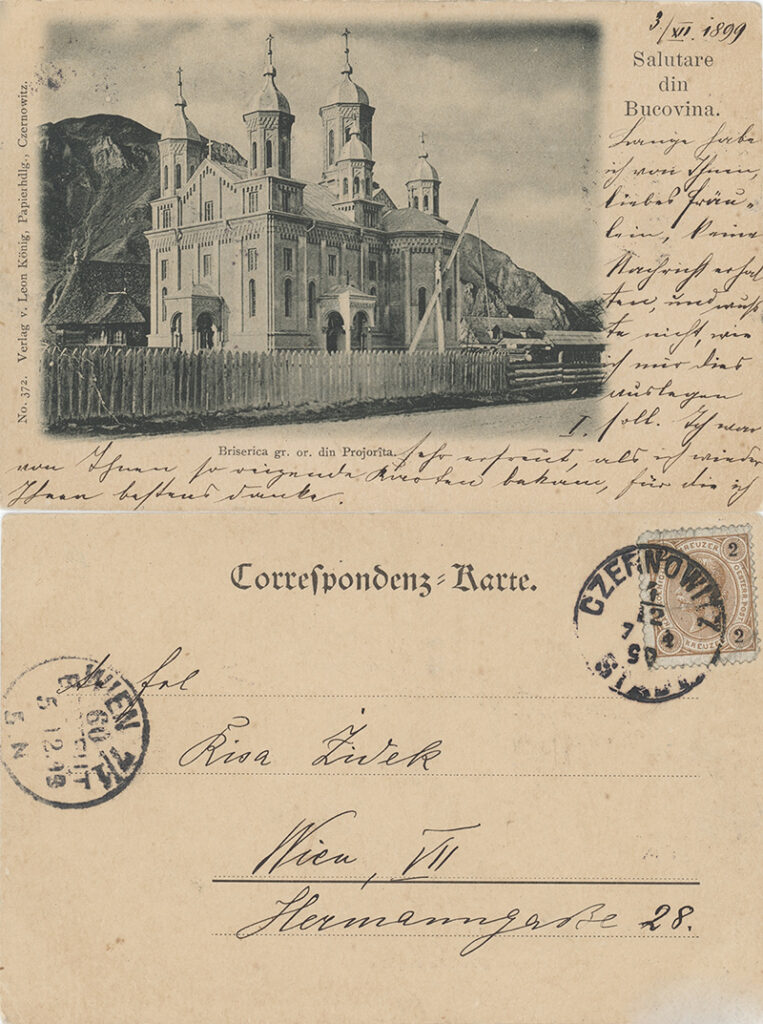 3./XII. 1899
Salutare
din
Bucovina.
Lange habe
ich von Ihnen,
liebes Fräu-
lein, keine
Nachricht erhal
ten, und wuß
te nicht, wie
ich mir dies
auslegen
I. soll. Ich war
Briserica gr. or. din Projorîta.
sehr erfreut, als ich wieder
von Ihnen so reizende Karten bekam, für die ich
Ihnen bestens danke.
No. 372. Verlag v. Leon König, Papierhdlg., Czernowitz.
Correspondenz-Karte.
CZERNOWITZ
KREUZER
2
2
KREUZER
WIEN 7/1
60
5 12.99
5.N
Risa Zidek
Wien, VII
Hermanngaße 28.